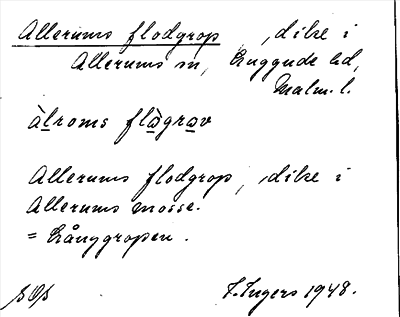 Allerums flodgrop, dike i
Allerums sn, Luggude hd,
Malm. l.
àlroms flògrav
Allerums flodgrop, dike i
Allerums mosse.
= Långgropen.
I. Ingers 1948.